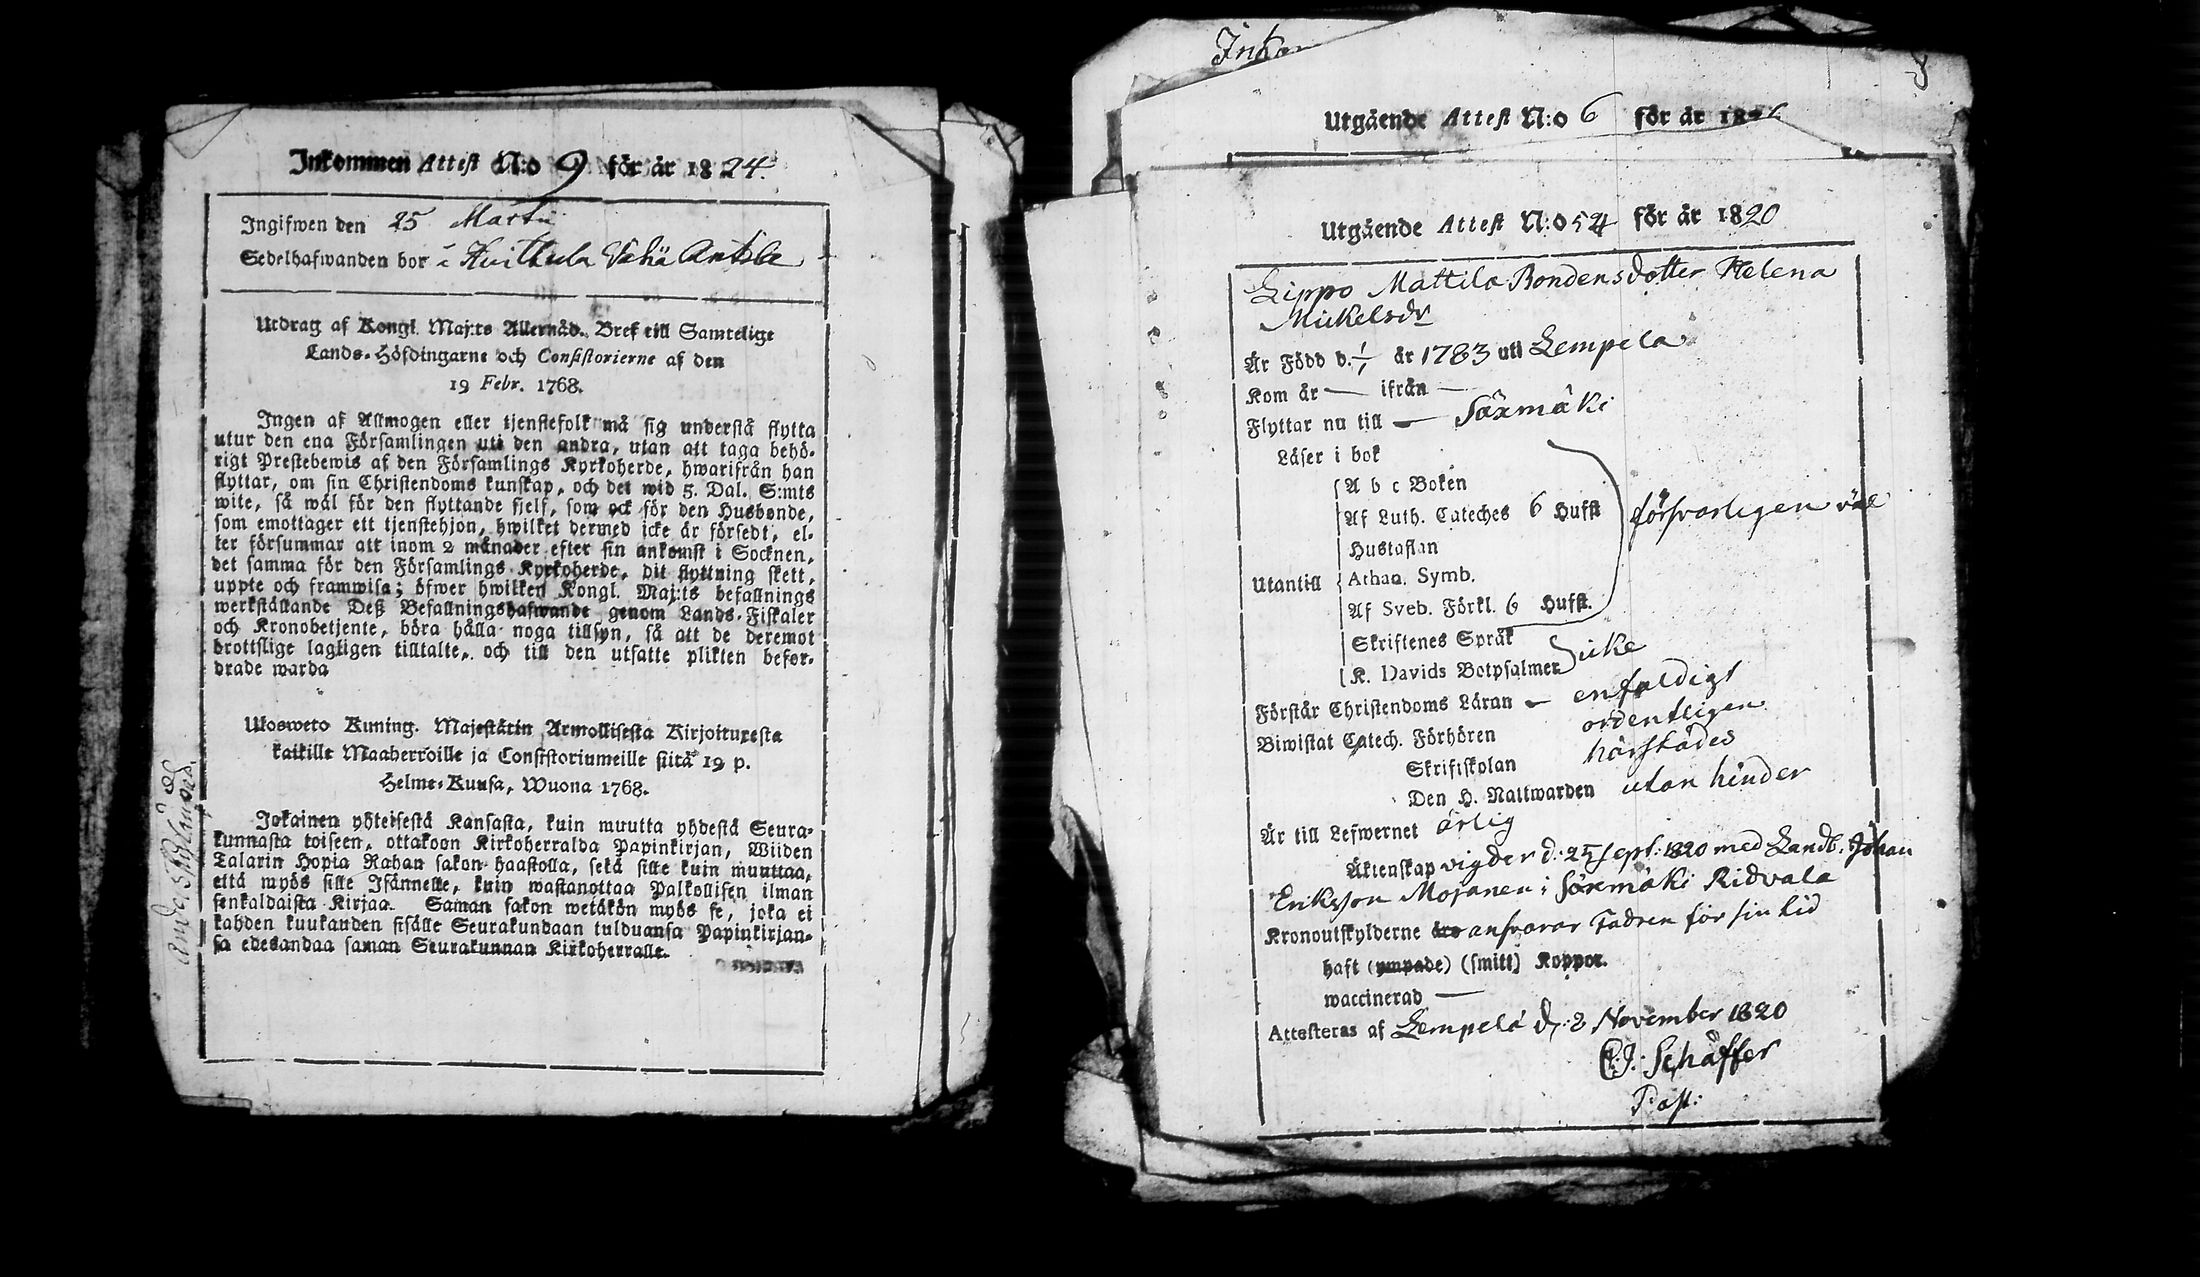 Inkommen Attest N:o 9 för år 1824.
Ingifwen den 25 Martii
Sedelhafwanden bor i Huithula Vähä Anttila
Utdrag af Kongl. Maj:ts Allernåd. Bref till Samtelige
Lands-Höfdingarne och Consistorierne af den
19 Febr. 1768.
Ingen af Allmogen eller tjenstefolk må sig understå flytta
utur den ena Församlingen uti den andra, utan att taga behö-
rigt Prestebewis af den Församlings Kyrkoherde, hwarifrån han
flyttar, om sin Christendoms kunskap, och det wid 5. Dal. S:mts
wite, så wäl för den flyttande sjelf, som ock för den Husbonde,
som emottager ett tjenstehjon, hwilket dermed icke är försedt, el-
ler försummar att inom 2 månader efter sin ankomst i Socknen,
det samma för den Församlings Kyrkoherde, dit flyttning skett,
uppte och framwisa; öfwer hwilken Kongl. Maj:ts befallnings
werkställande Deß Befallningshafwande genom Lands-Fiskaler
och Kronobetjente, böra hålla noga tillsyn, så att de deremot
brottslige lagligen tilltalte, och till den utsatte plikten befor-
drade warda
Ulosweto Kuning. Majestätin Armollisesta Kirjoituresta
kaikille Maaherroille ja Consistoriumeille siitä 19 p.
Helme-Kuusa, Wuona 1768.
Jokainen yhteisestä Kansasta, kuin muutta yhdestä Seura-
kunnasta toiseen, ottakoon Kirkoherralda Papinkirjan, Wiiden
Talarin Hopia Rahan sakon haastolla, sekä sille kuin muuttaa,
että myös sille Isännelle, kuin wastanottaa Palkollisen ilman
senkaldaista Kirjaa. Saman sakon wetäkön myös se, joka ei
kahden kuukauden sisälle Seurakundaan tulduansa Papinkirjan-
sa edesandaa saman Seurakunnan Kirkoherralle.
Inkom
Utgående Attest N:o 6 för år 18
Utgående Attest N:o 54 för år 1820
Lippo Mattila Bondensdotter Helena
Mickelsdr
Är Född d. 1/1 år 1783 uti Lempela
Kom år — ifrån —
Flyttar nu till — Säxmäki
Läser i bok
A b c Boken
Af Luth. Cateches 6 Hufst
försvarligen väl
Hustaflan
Utantill
Athan. Symb.
Af Sveb. Förkl. 6 Hufst.
Skriftenes Språk
K. Davids Botpsalmer
icke
Förstår Christendoms Läran — enfaldigt
Biwistat Catech. Förhören ordentligen
Skriftskolan härstädes
Den H. Nattwarden utan hinder
Är till Lefwernet ärlig
Äktenskap vigder d. 25 Sept: 1820 med Landb. Johan
Eriksson Mojanen i Säxmäki Ridvala
Kronoutskylderne äro ansvarar Fadren för sin tid
haft (ympade) (smitt) Koppor.
waccinerad —
Attesteras af Lempelä d. 8 November 1820
C.J. Schäffer
Past: